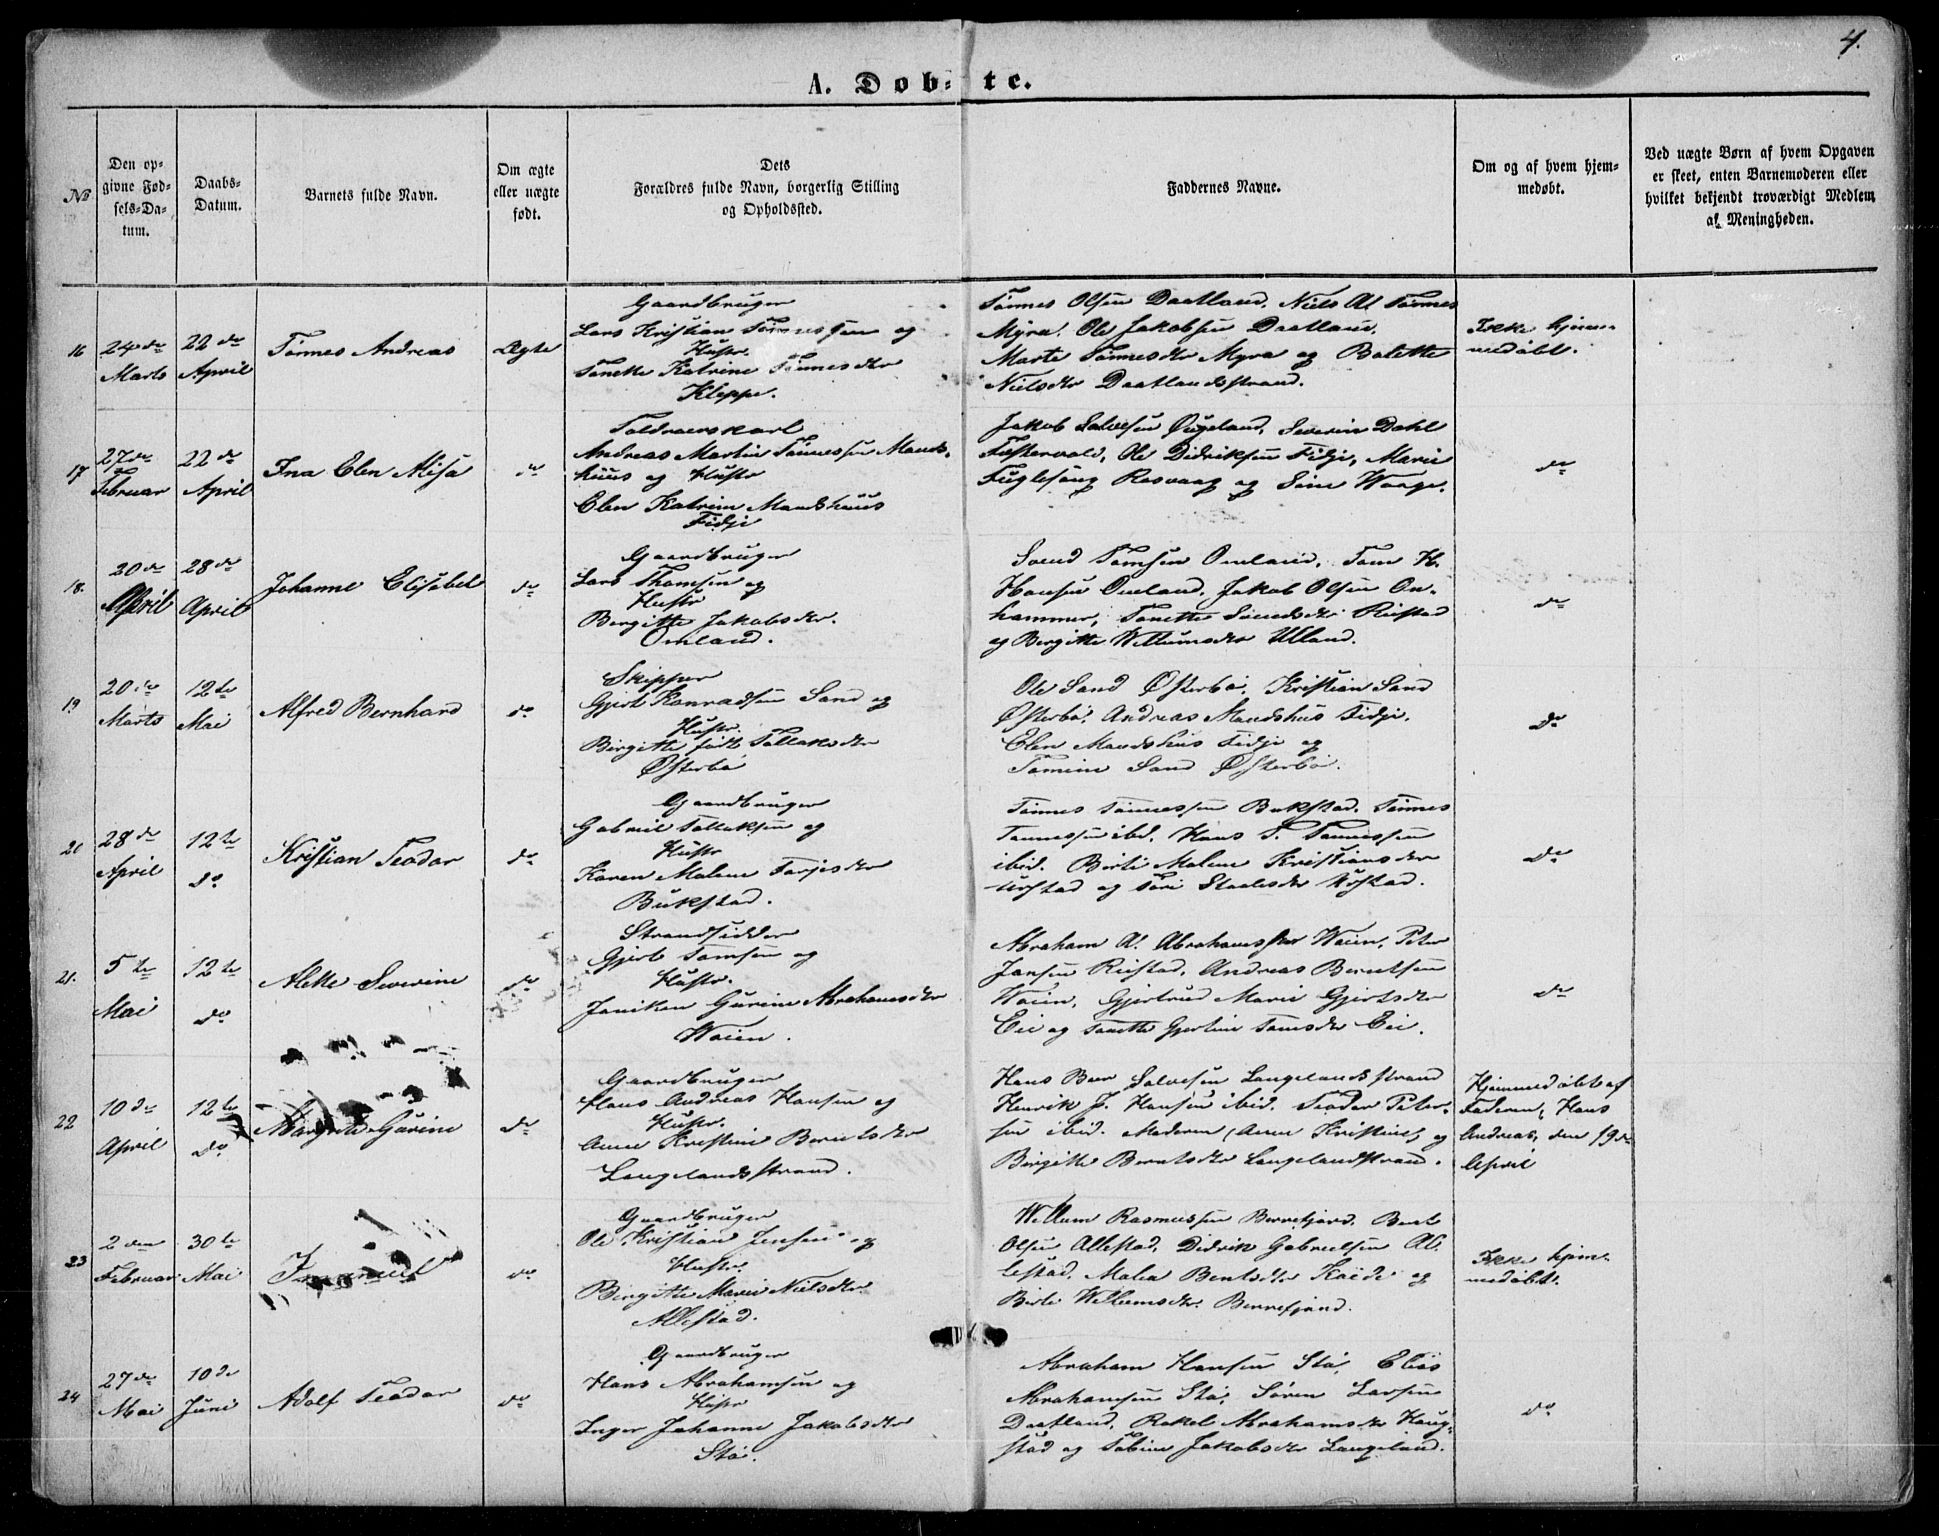 4.
A. Døb- te.
No
Den op-
givne Fød-
sels-Da-
tum.
Daabs-
Datum.
Barnets fulde Navn.
Om ægte
eller uægte
født.
Dets
Forældres fulde Navn, borgerlig Stilling
og Opholdssted.
Faddernes Navne.
Om og af hvem hjem-
medøbt.
Ved uægte Børn af hvem Opgaven
er skeet, enten Barnemoderen eller
hvilket bekjendt troværdigt Medlem
af Meningheden.
16
24de
Marts
22de
April
Tønnes Andreas
Ægte
Gaardbruger
Lars Kristian Tønnessen og
Hustr.
Tonette Katrine Tønnesdtr
Kleppe.
Tønnes Olsen Daatland, Niels Al Tønnes
Myra. Ole Jakobsen Daatland.
Marte Tønnesdtr Myra og Bolette
Nielsdtr Daatlandsstrand.
Ikke hjem-
medøbt.
17
27de
Februar
22de
April
Ina Elen Alisa
do
Toldroerskarl
Andreas Martin Tønnessen Mands-
huus og Hustr
Elen Katrine Mandshuus
Fidje
Jakob Salvesen Øigeland, Severin Dahl
Ole Didriksen Fidje, Marie
Fuglesang Rasvaag og Sine Waage.
do
18.
20de
April
28de
April
Johanne Elisabet
do
Gaardbruger
Lars Thomsen og
Hustr
Bergitte Jakobsdtr.
Omland.
Svend Tomsen Omland, Tom H.
Hansen Omland, Jakob Olsen On-
hammer, Tonette Svendsdtr Rustad
og Bergitte Willumsdtr Ulland.
do
19
20de
Marts
12te
Mai
Alfred Bernhard
do
Skipper
Gjert Konradsen Sand og
Hustr.
Birgitte født Tollaksdtr
Østerbø
Ole Sand Østerbø, Kristian Sand
Østerbø, Andreas Mandshus Fidje,
Elen Mandshus Fidje og
Tomine Sand Østerbø.
do
20
28de
April
12te
do
Kristian Teodor
do
Gaardbruger
Gabriel Tollaksen og
Hustr
Karen Malene Terjesdtr
Bukstad.
Tønnes Tønnessen Bukstad. Tønnes
Tønnessen ibid. Hans T. Tønnessen
ibid. Berte Malene Kristiansdtr
Urstad og Siri Staalesdtr Urstad.
do
21.
5te
Mai
12te
do
Alette Severine
do
Strandsidder
Gjert Tomsen og
Hustr.
Janiken Gurine Abrahamsdtr
Waien.
Abraham A. Abrahamssen Waien, Peter
Jansen Rustad, Andreas Berntsen
Waien, Gjertrud Marie Gjertsdtr
Eie og Tonette Gjertine Tomsdtr Eie.
do
22
10de
April
12te
do
Margrete Gurine
do
Gaardbruger
Hans Andreas Hansen og
Hustr.
Anne Kristine Berntsdtr
Langelandsstrand.
Hans Bera Salvesen Langelandsstrand
Henrik J. Hansen ibid. Teodor Peter-
sen ibid. Moderen (Anne Kristine) og
Birgitte Berntsdtr Langelandsstrand.
Hjemmedøbt af
Faderen, Hans
Andreas, den 19de
April
23
2den
Februar
30te
Mai
Imanuel
do
Gaardbruger
Ole Kristian Jensen og
Hustr.
Birgitte Marie Nielsdtr
Allestad.
Willum Rasmussen Berrefjord. Bent
Olsen Allestad, Didrik Gabrielsen Al-
lestad, Malea Bentsdtr Kaede og
Berte Willumsdtr. Berrefjord.
Ikke hjem-
medøbt.
24
27de
Mai
10de
Juni
Adolf Teodor
do
Gaardbruger
Hans Abrahamsen og
Hustr
Inger Johanne Jakobsdtr
Stø.
Abraham Hansen Stø, Elias
Abrahamsen Stø, Søren Larsen
Daatland, Rakel Abrahamsdtr Haug-
stad og Tobine Jakobsdtr Langeland.
do